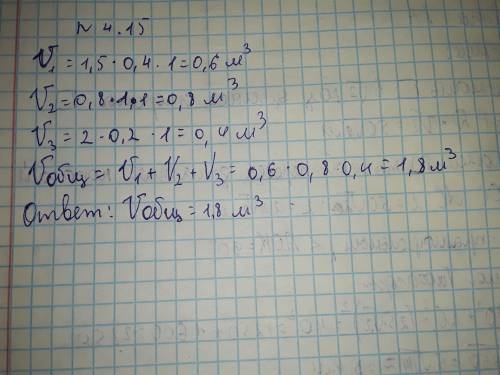 № 4.15
V₁ = 1,5 · 0,4 · 1 = 0,6 м³
V₂ = 0,8 · 1 · 1 = 0,8 м³
V₃ = 2 · 0,2 · 1 = 0,4 м³
Vобщ = V₁ + V₂ + V₃ = 0,6 · 0,8 · 0,4 = 1,8 м³
Ответ: Vобщ = 1,8 м³